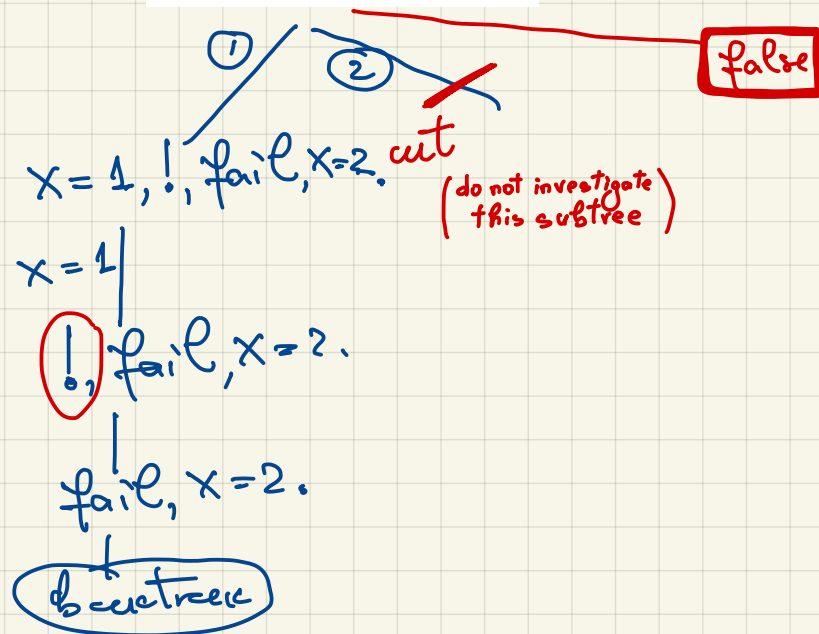 ① ② false
x = 1, !, fail, x=2. cut
(do not investigate
this subtree)
x = 1
!, fail, x = 2.
fail, x = 2.
backtrack